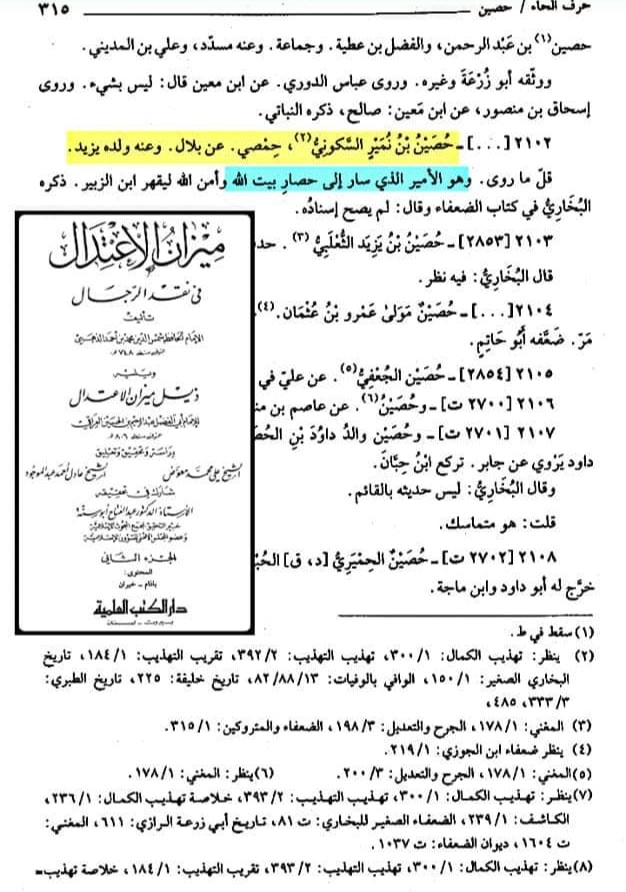 حرف الحاء / حصين ٣١٥
حصين(١) بن عَبْد الرحمن، والفضل بن عطية. وجماعة. وعنه مسدّد، وعلي بن المديني.
ووثّقه أبو زُرْعَةَ وغيره. وروى عباس الدوري. عن ابن معين قال: ليس بشيء. وروى
إسحاق بن منصور، عن ابن مَعين: صالح، ذكره النباتي.
٢١٠٢ [. . .] ـ حُصَيْنُ بْنُ نُمَيْرٍ السَّكونِيُّ(٢)، حِمْصي. عن بلال. وعنه ولده يزيد.
قلّ ما روى. وهو الأمير الذي سار إلى حصارِ بيت الله وأمن الله ليقهر ابن الزبير. ذكره
البُخَارِيُّ في كتاب الضعفاء وقال: لم يصح إسنادُه.
٢١٠٣ [٢٨٥٣] ـ حُصَيْنُ بْنُ يَزِيدَ الثَّعْلَبِيُّ (٣).
قال البُخَارِيُّ: فيه نظر.
٢١٠٤ [. . .] ـ حُصَيْنٌ مَوْلىٰ عَمْرِو بْنُ عُثْمَان. (٤)
مَرّ. ضَعَّفه أَبُو حَاتِمٍ.
٢١٠٥ [٢٨٥٤] ـ حُصَيْن الجُعْفِيُّ(٥). عن عليّ في
٢١٠٦ [٢٧٠٠ ت] ـ وحُصَيْنُ(٦). عن عاصم بن
٢١٠٧ [٢٧٠١ ت] ـ وحُصَيْن والدُ داوُدَ بْنِ
داود يَرْوي عن جابر. تركع ابْنُ حِبَّانَ.
وقال البُخَارِيُّ: ليس حديثه بالقائم.
قلت: هو متماسك.
٢١٠٨ [٢٧٠٢ ت] ـ حُصَيْنٌ الحِمْيَرِيُّ [د، ق]
خرَّج له أبو داود وابن ماجة.
ميزان الاعتدال
في نقد الرجال
تأليف
الإمام الحافظ شمس الدين محمد بن أحمد الذهبي
المتوفى سنة ٧٤٨ هـ
ويليه
ذيل ميزان الاعتدال
للإمام أبي الفضل عبد الرحيم بن الحسين العراقي
المتوفى سنة ٨٠٦ هـ
دراسة وتحقيق وتعليق
الشيخ علي محمد معوض الشيخ عادل أحمد عبد الموجود
شارك في تحقيقه
الأستاذ الدكتور عبد الفتاح أبو سنة
خبير التحقيق بمجمع البحوث الإسلامية
وعضو المجلس الأعلى للشؤون الإسلامية
الجزء الثاني
المحتوى:
باذام - خيران
دار الكتب العلمية
بيروت - لبنان
(١) سقط في ط.
(٢) ينظر: تهذيب الكمال: ٣٠٠/١، تهذيب التهذيب: ٣٩٢/٢، تقريب التهذيب: ١٨٤/١، تاريخ
البخاري الصغير: ١٥٠/١، الوافي بالوفيات: ٨٢/٨٨/١٣، تاريخ خليفة: ٢٢٥، تاريخ الطبري:
٣٣٣/٣، ٤٨٥،
(٣) المغني: ١٧٨/١، الجرح والتعديل: ١٩٨/٣، الضعفاء والمتروكين: ٣١٥/١.
(٤) ينظر ضعفاء ابن الجوزي: ٢١٩/١.
(٥) المغني: ١٧٨/١، الجرح والتعديل: ٢٠٠/٣. (٦) ينظر: المغني: ١٧٨/١.
(٧) ينظر: تهذيب الكمال: ٣٠٠/١، تهذيب التهذيب: ٣٩٣/٢، خلاصة تهذيب الكمال: ٢٣٦/١،
الكاشف: ٢٣٩/١، الضعفاء الصغير للبخاري: ت ٨١، تاريخ أبي زرعة الرازي: ٦١١، المغني:
ت ١٦٠٤، ديوان الضعفاء: ت ١٠٣٧.
(٨) ينظر: تهذيب الكمال: ٣٠٠/١، تهذيب التهذيب: ٣٩٣/٢، تقريب التهذيب: ١٨٤/١، خلاصة تهذيب=